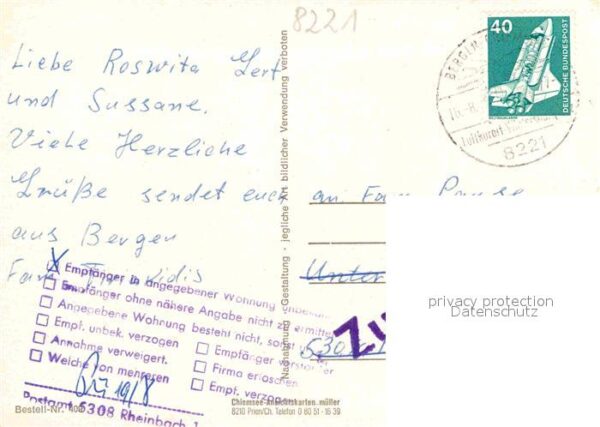 8221
Liebe Roswita Gert
und Sussane.
Viele Herzliche
Grüße sendet euch
aus Bergen
Fam.
an Fam.
Unter
530
40
DEUTSCHE BUNDESPOST
BERGEN
Luftkurort
8221
Nachahmung - Gestaltung - jegliche Art bildlicher Verwendung verboten
Empfänger in angegebener Wohnung
Empfänger ohne nähere Angabe nicht zu ermitteln
Angegebene Wohnung besteht nicht, sonst
Empf. unbek. verzogen
Annahme verweigert.
Welcher von mehreren
Empfänger verstorben
Firma erloschen
Empf. verzogen
19/8
Postamt 5308 Rheinbach 1
Zu
privacy protection
Datenschutz
Bestell-Nr.
Chiemsee-Ansichtskarten. müller
8210 Prien/Ch. Telefon 0 80 51 - 16 39